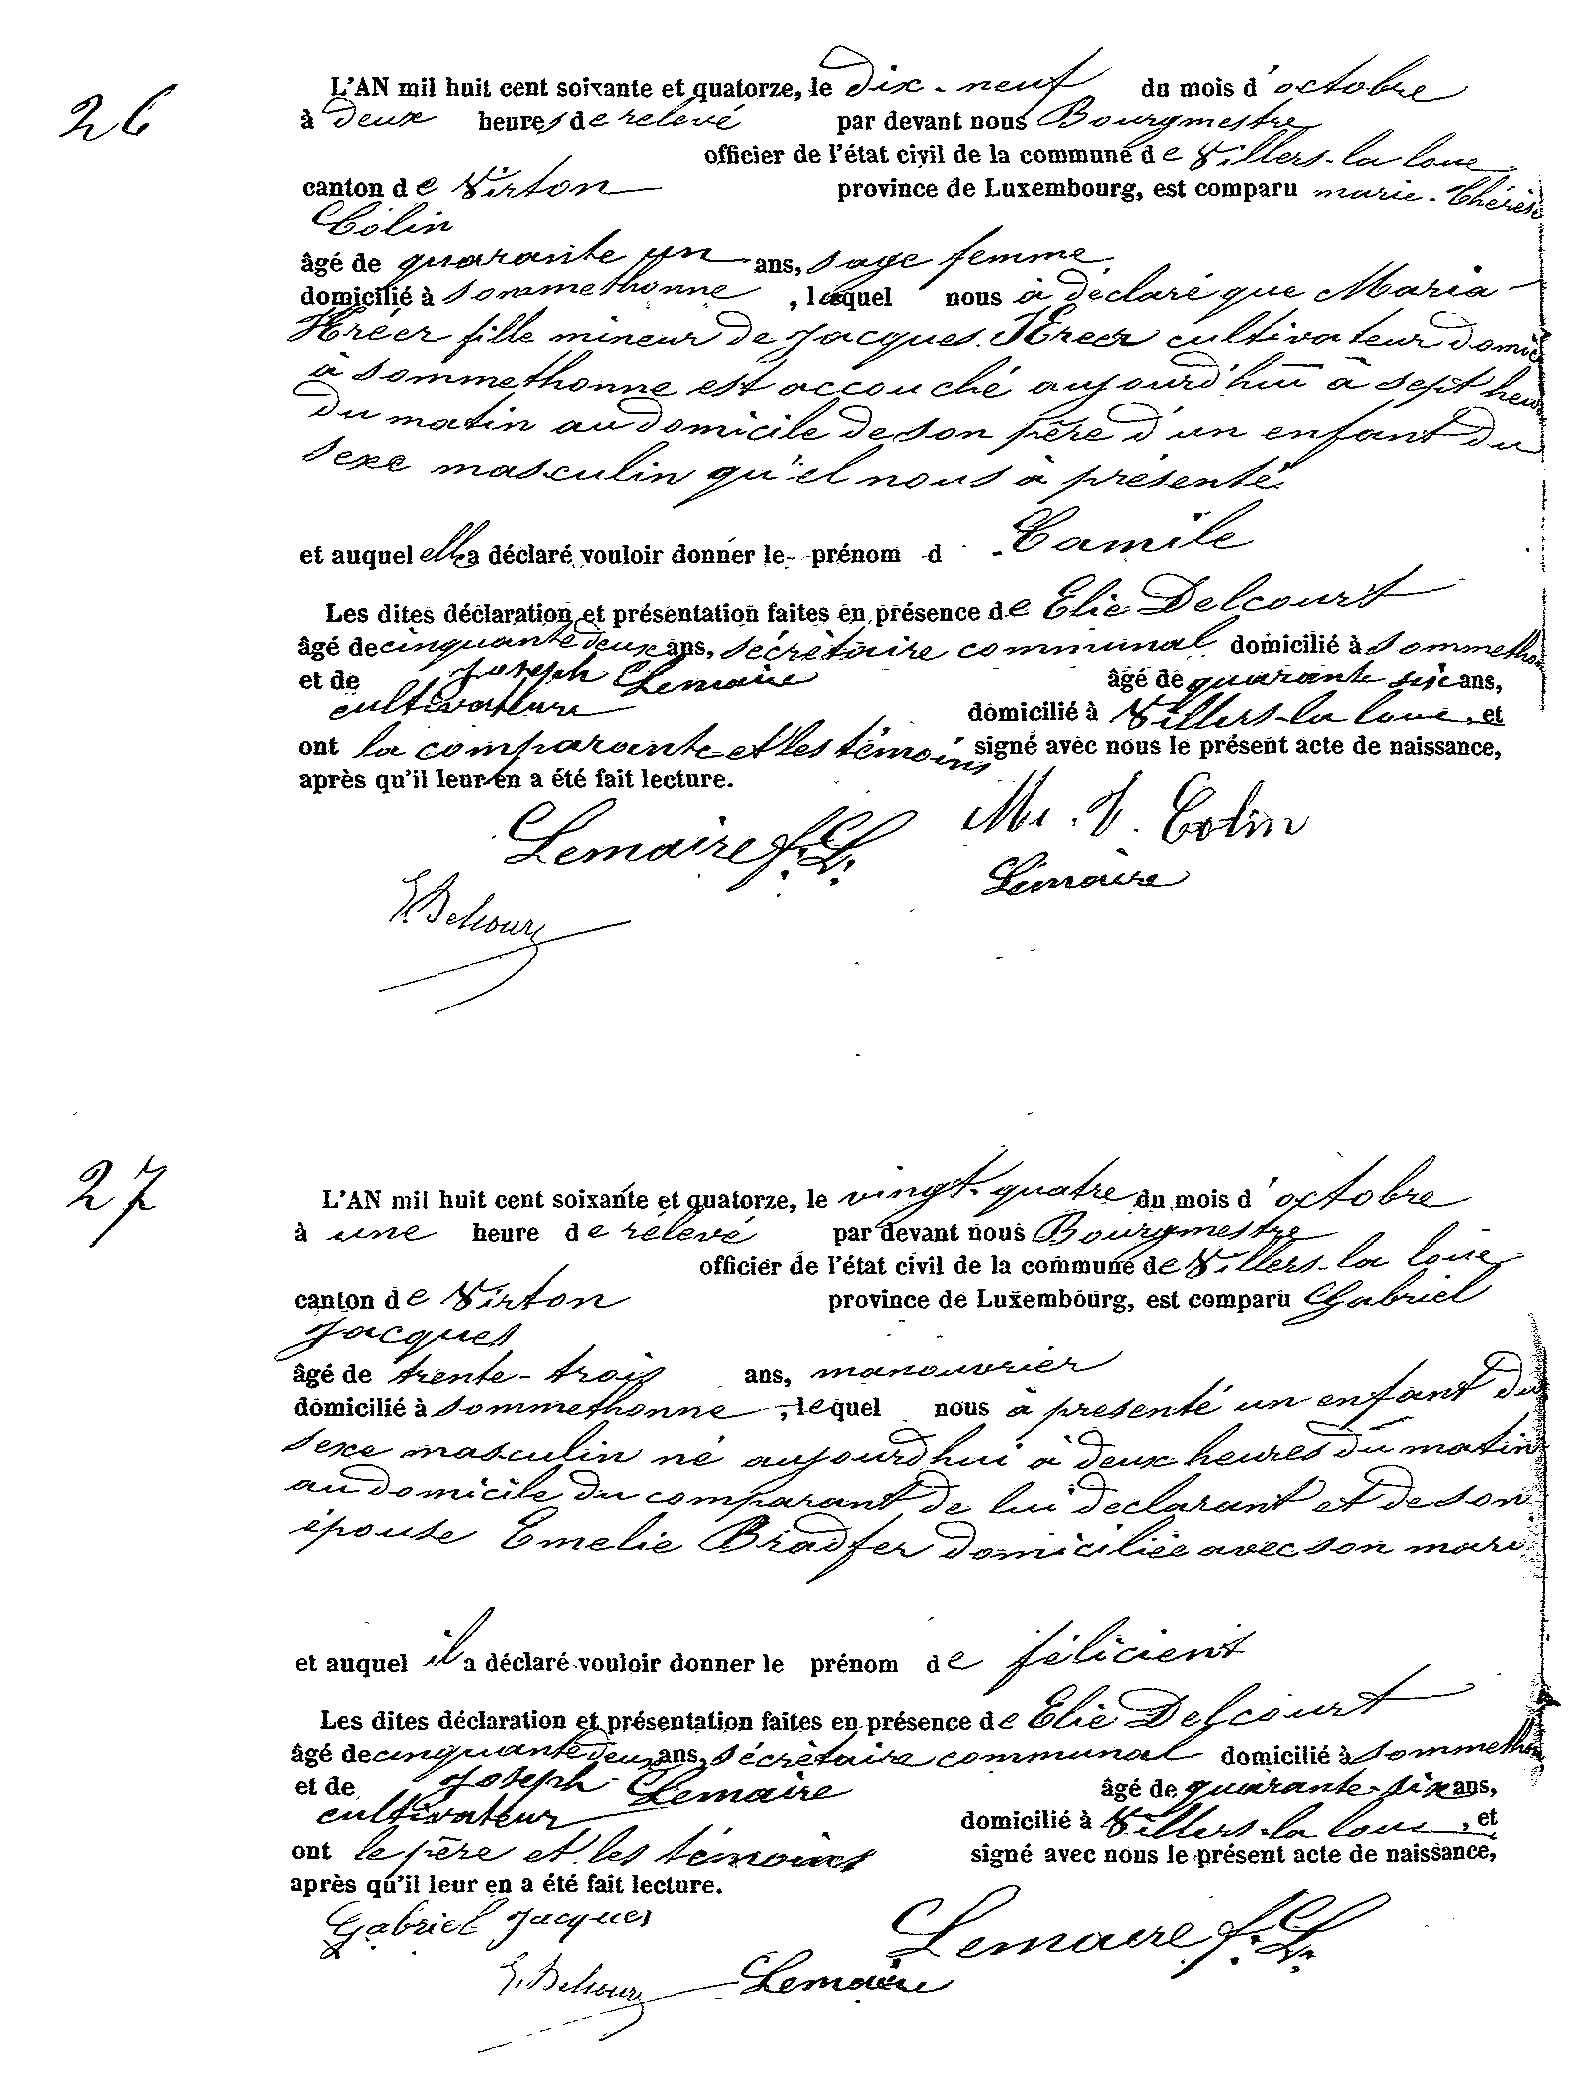 26
L'AN mil huit cent soixante et quatorze, le dix-neuf du mois d'octobre
à deux heures de relevé par devant nous Bourgmestre
officier de l'état civil de la commune de Villers-la loue
canton de Virton province de Luxembourg, est comparu marie-Thérèse
Colin
âgé de quarante un ans, sage femme
domicilié à Sommethonne, laquel nous à déclaré que Maria
Kréer fille mineur de Jacques Kréer cultivateur domic
à Sommethonne est accouché aujourd'hui à sept heu
du matin au domicile de son père d'un enfant du
sexe masculin qu'el nous à présenté
et auquel elle a déclaré vouloir donner le prénom d Camile
Les dites déclaration et présentation faites en présence de Elie Delcourt
âgé de cinquante deux ans, sécrètaire communal domicilié à Sommetho
et de Joseph Lemaire âgé de quarante six ans,
cultivateur domicilié à Villers-la loue, et
ont la comparante et les témoins signé avec nous le présent acte de naissance,
après qu'il leur en a été fait lecture.
Lemaire f. L. M. T. Colin
Lemaire
E. Delcourt
27
L'AN mil huit cent soixante et quatorze, le vingt-quatre du mois d'octobre
à une heure de relevé par devant nous Bourgmestre
officier de l'état civil de la commune de Villers-la loue
canton de Virton province de Luxembourg, est comparu Gabriel
Jacques
âgé de trente-trois ans, manouvrier
domicilié à Sommethonne, lequel nous à presenté un enfant du
sexe masculin né aujourd'hui à deux heures du matin
au domicile du comparant de lui déclarant et de son
épouse Emelie Bradfer domiciliée avec son mari
et auquel il a déclaré vouloir donner le prénom de félicient
Les dites déclaration et présentation faites en présence de Elie Delcourt
âgé de cinquante deux ans, sécrètaire communal domicilié à Sommetho
et de Joseph Lemaire âgé de quarante-six ans,
cultivateur domicilié à Villers-la loue, et
ont le père et les témoins signé avec nous le présent acte de naissance,
après qu'il leur en a été fait lecture.
Gabriel Jacques Lemaire f. L.
E. Delcourt Lemaire